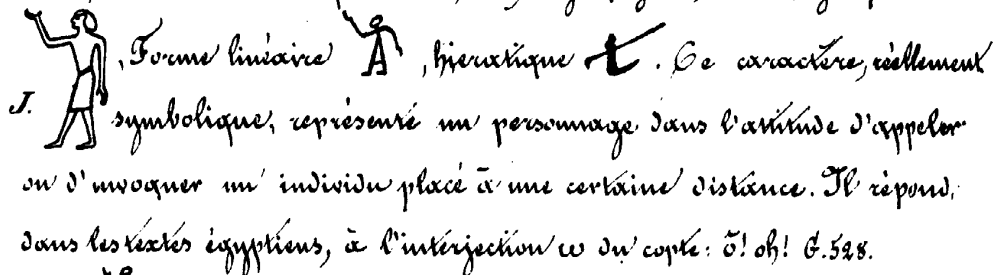 , Forme linéaire , hieratique . Ce caractère, réellement
J. symbolique, représente un personnage dans l'attitude d'appeler
ou d'invoquer un individu placé à une certaine distance. Il répond,
dans les textes égyptiens, à l'interjection ⲱ du copte: ō! oh! G. 528.